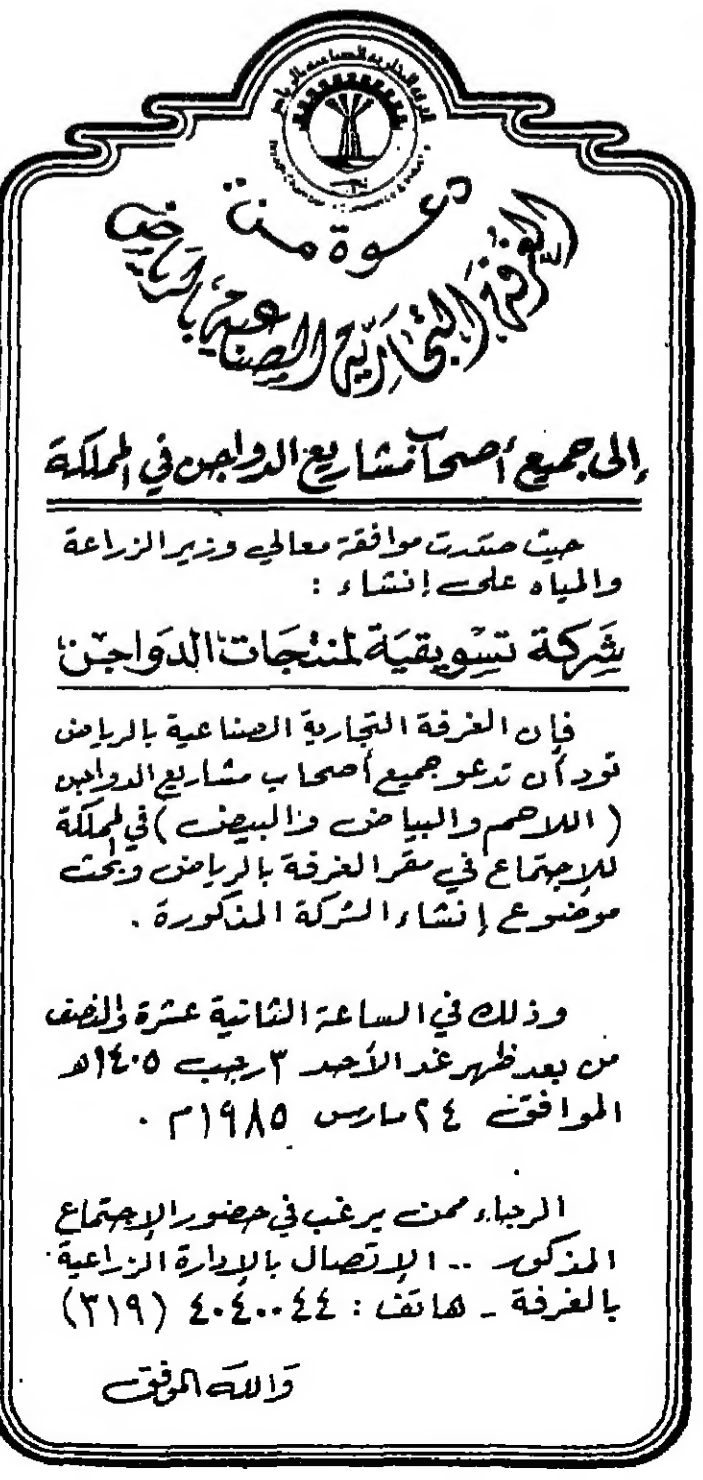 الغرفة التجارية الصناعية بالرياض
دعوة من
الغرفة التجارية الصناعية بالرياض
إلى جميع أصحاب مشاريع الدواجن في المملكة
حيث صدرت موافقة معالي وزير الزراعة
والمياه على إنشاء :
شركة تسويقية لمنتجات الدواجن
فإن الغرفة التجارية الصناعية بالرياض
تود أن تدعو جميع أصحاب مشاريع الدواجن
( اللاحم والبياض والبيض ) في المملكة
للإجتماع في مقر الغرفة بالرياض وبحث
موضوع إنشاء الشركة المذكورة .
وذلك في الساعة الثانية عشرة والنصف
من بعد ظهر غد الأحد ٣ رجب ١٤٠٥هـ
الموافق ٢٤ مارس ١٩٨٥م .
الرجاء ممن يرغب في حضور الإجتماع
المذكور .. الإتصال بالإدارة الزراعية
بالغرفة ـ هاتف : ٤٠٤٠٠٤٤ (٣١٩)
والله الموفق